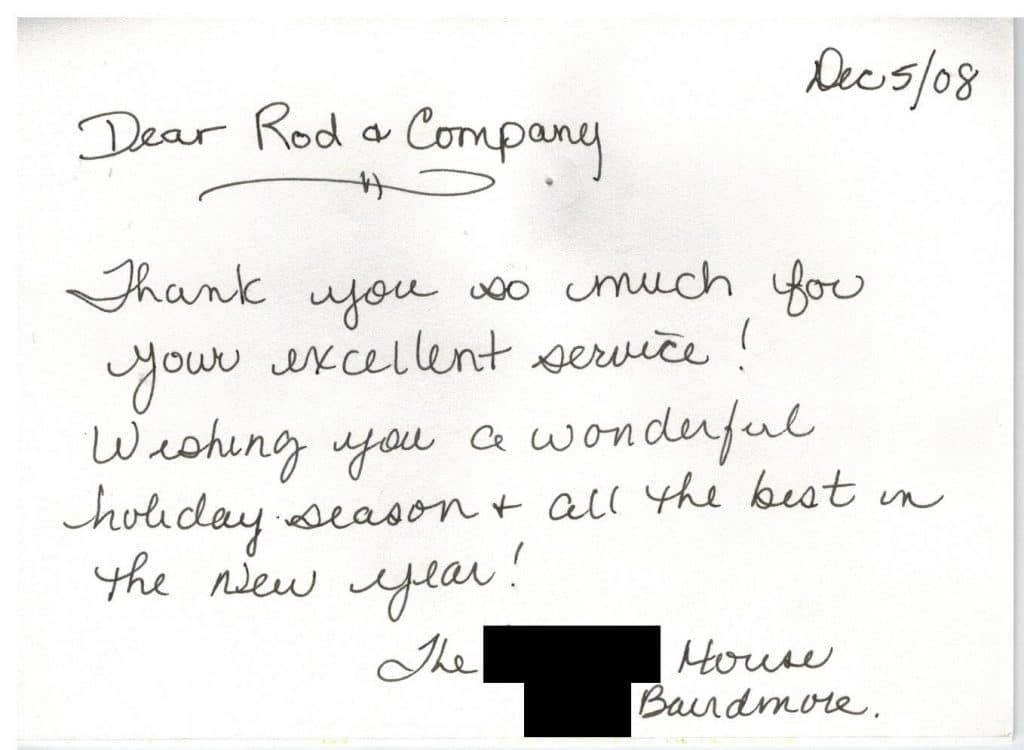 Dec 5/08
Dear Rod & Company
Thank you so much for
your excellent service!
Wishing you a wonderful
holiday season + all the best in
the New year!
The House
Bairdmore.